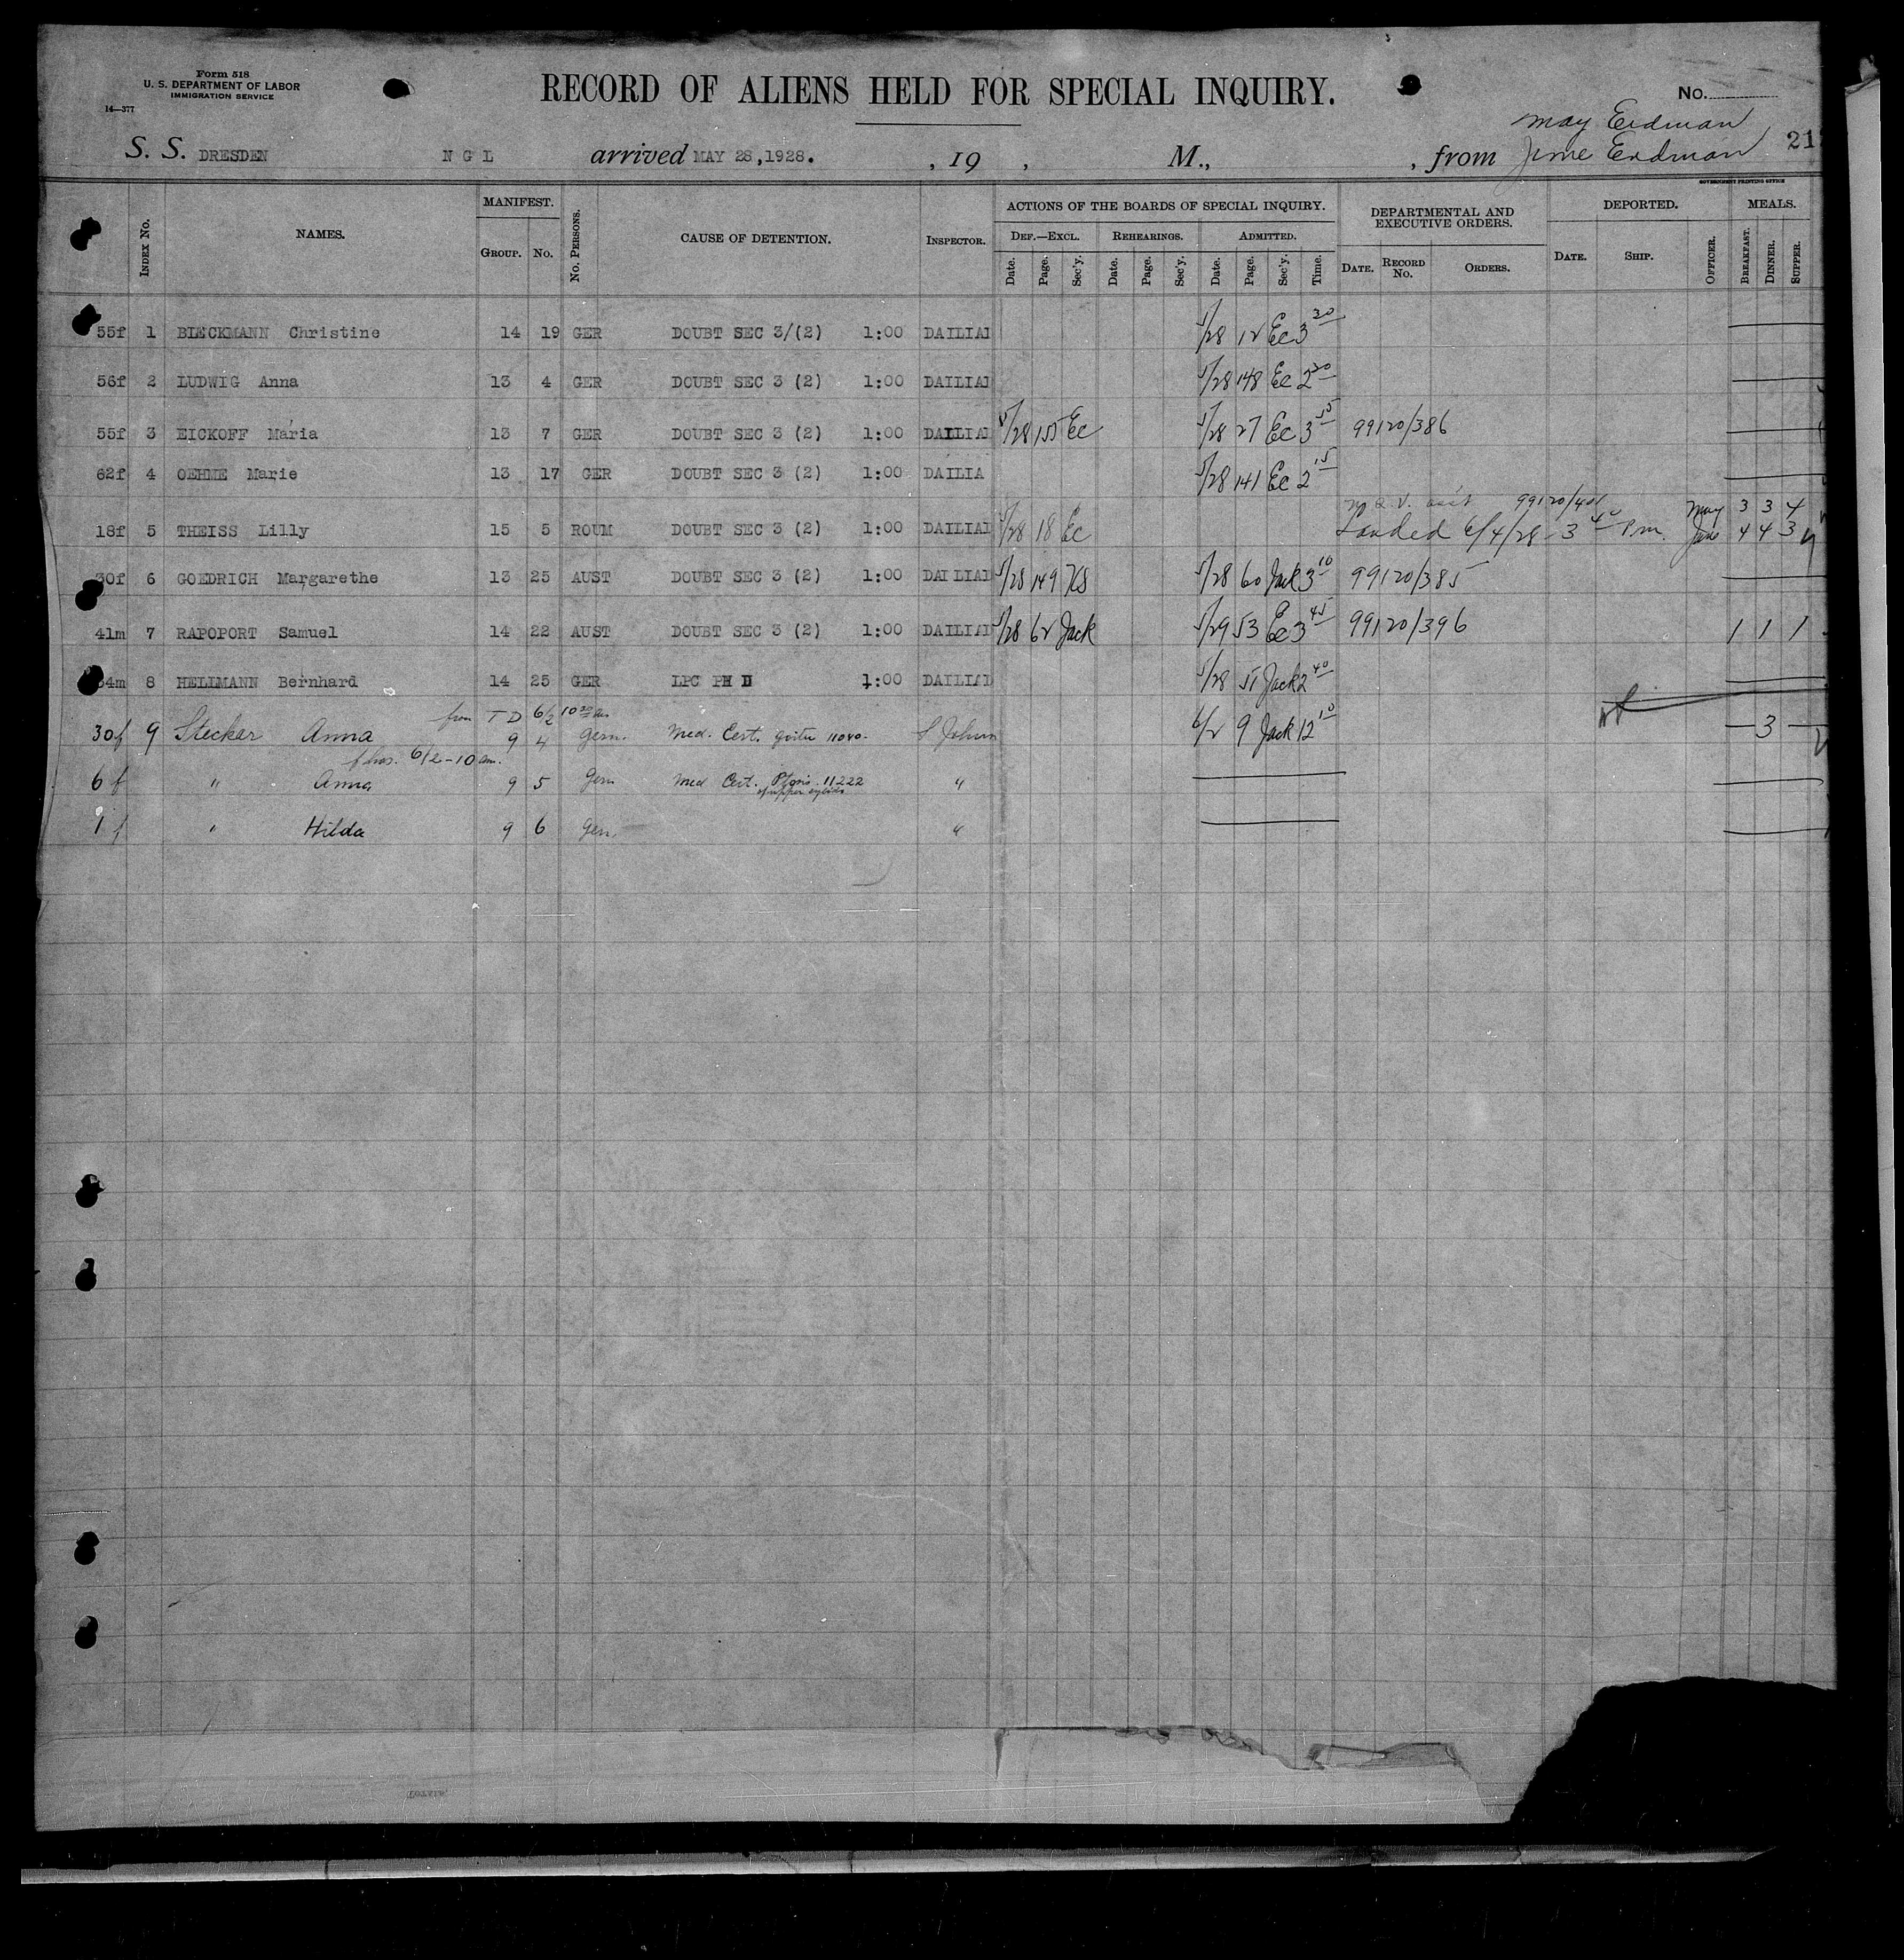 Form 518
U. S. DEPARTMENT OF LABOR
IMMIGRATION SERVICE
14—377
RECORD OF ALIENS HELD FOR SPECIAL INQUIRY.
No.
May Erdman
S. S. DRESDEN N G L arrived MAY 28, 1928. , 19 , M., , from June Erdman 217
GOVERNMENT PRINTING OFFICE
Index No. NAMES. MANIFEST. Group. No. No. Persons. CAUSE OF DETENTION. Inspector. ACTIONS OF THE BOARDS OF SPECIAL INQUIRY. Def.—Excl. Date. Page. Sec'y. Rehearings. Date. Page. Sec'y. Admitted. Date. Page. Sec'y. Time. DEPARTMENTAL AND EXECUTIVE ORDERS. Date. Record No. Orders. DEPORTED. Date. Ship. Officer. MEALS. Breakfast. Dinner. Supper.
55f 1 BIECKMANN Christine 14 19 GER DOUBT SEC 3/(2) 1:00 DAILIAI 5/28 12 Ec 3 20
56f 2 LUDWIG Anna 13 4 GER DOUBT SEC 3 (2) 1:00 DAILIAI 5/28 148 Ec 2 20
55f 3 EICKOFF Maria 13 7 GER DOUBT SEC 3 (2) 1:00 DAILIAI 5/28 155 Ec 5/28 27 Ec 3 55 99120/386
62f 4 OEHME Marie 13 17 GER DOUBT SEC 3 (2) 1:00 DAILIA 5/28 141 Ec 2 15
99120/401 May 3 3 4
18f 5 THEISS Lilly 15 5 ROUM DOUBT SEC 3 (2) 1:00 DAILIAI 5/28 18 Ec Landed 6/4/28 - 3 40 P.m. June 4 4 3
30f 6 GOEDRICH Margarethe 13 25 AUST DOUBT SEC 3 (2) 1:00 DAILIAI 5/28 149 KS 5/28 60 Jack 3 10 99120/385
41m 7 RAPOPORT Samuel 14 22 AUST DOUBT SEC 3 (2) 1:00 DAILIAI 5/28 62 Jack 5/29 53 Ec 3 45 99120/396 1 1 1
34m 8 HELLMANN Bernhard 14 25 GER LPC PH D 1:00 DAILIAI 5/28 51 Jack 2 40
from T D 6/2 10 30 am
30f 9 Stecker Anna 9 4 Germ. Med. Cert. goitre 11040. S Johnson 6/2 9 Jack 12 10 3
f hos. 6/2-10 am.
6 f " Anna 9 5 Germ Med Cert. Ptosis 11222 "
of upper eyelids
1 f " Hilda 9 6 Gem. "